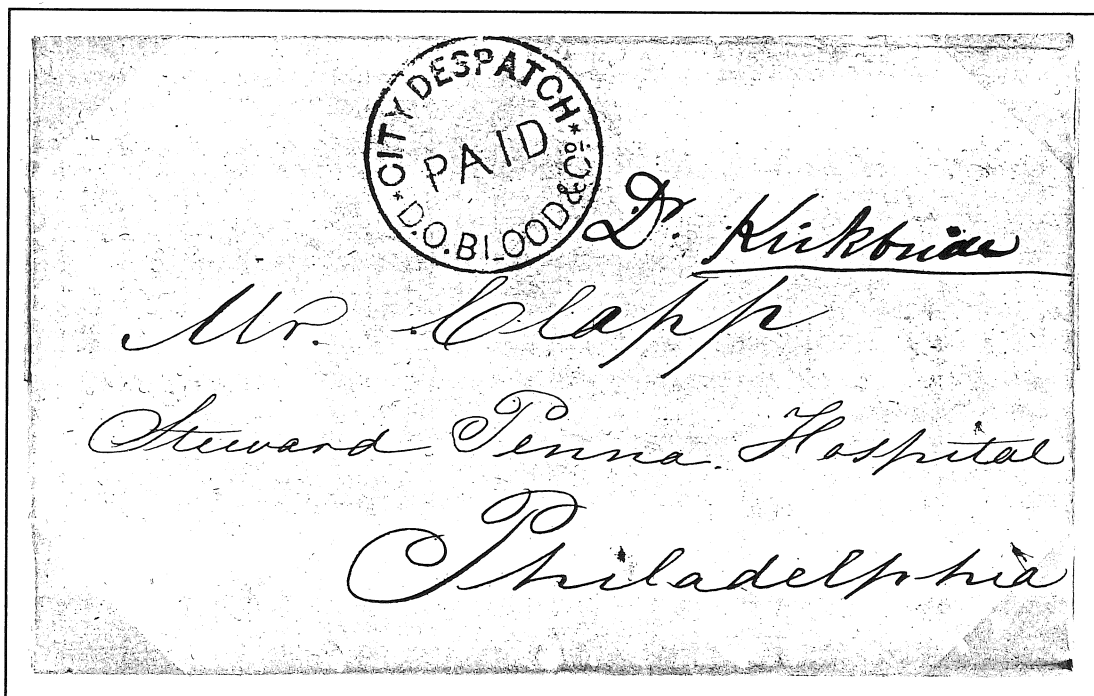 ★ CITY DESPATCH ★
PAID
D.O. BLOOD & Co.
Dr. Kirkbride
Mr. Clapp
Steward Penna. Hospital
Philadelphia